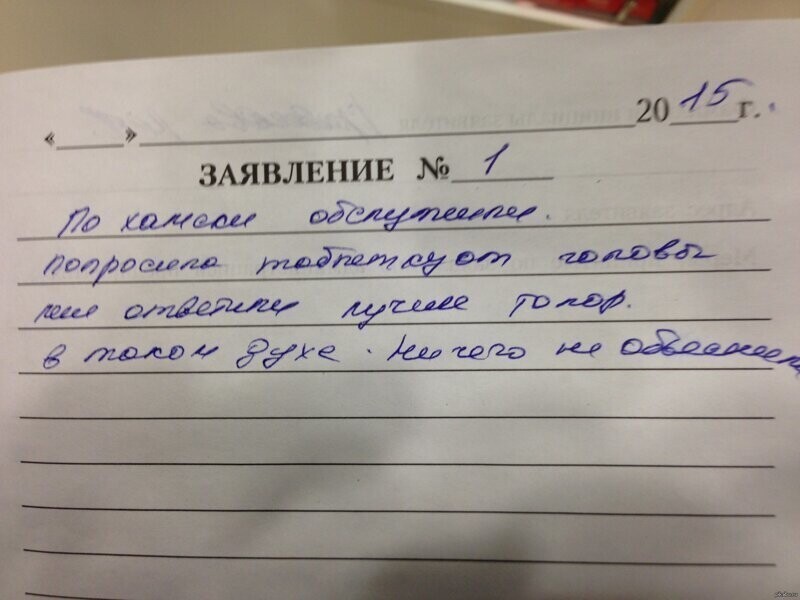 «____»____________________2015 г.
ЗАЯВЛЕНИЕ № 1
По хамски обслужили.
попросила таблетку от головы
мне ответили лучше топор.
в таком духе. Ничего не объяснили